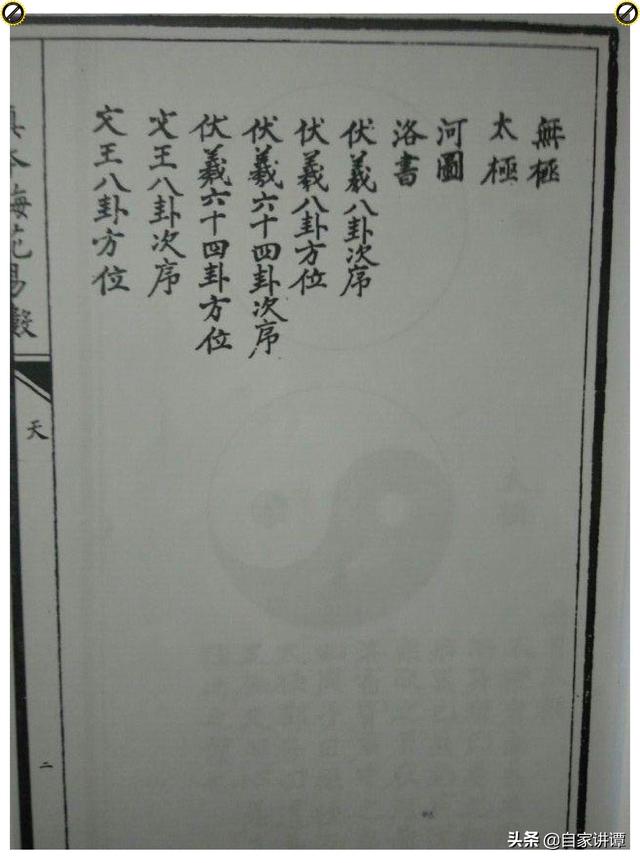 無極
太極
河圖
洛書
伏羲八卦次序
伏羲八卦方位
伏羲六十四卦次序
伏羲六十四卦方位
文王八卦次序
文王八卦方位
本梅花易數
天
二
头条 @自家讲谭